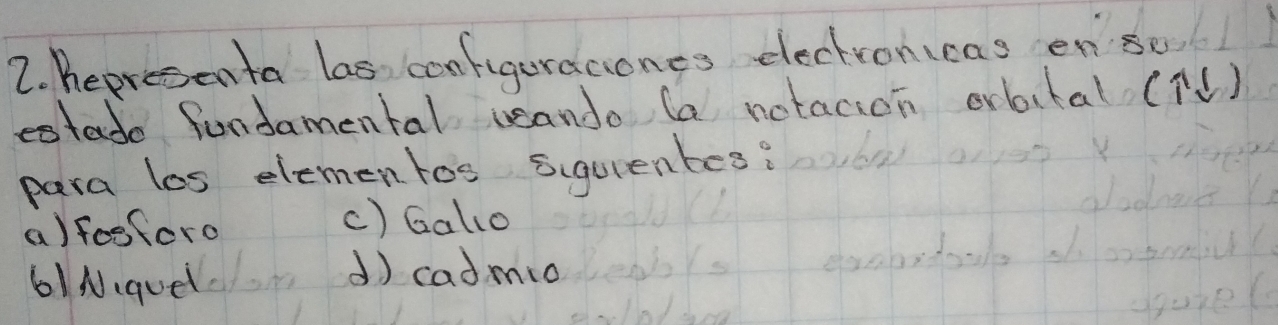 2. Representa las configuraciones electronicas en su
estado fundamental usando la notación orbital (↑↓)
para los elementos siguientes:
a) Fosforo c) Galio
b) Niquel d) cadmio